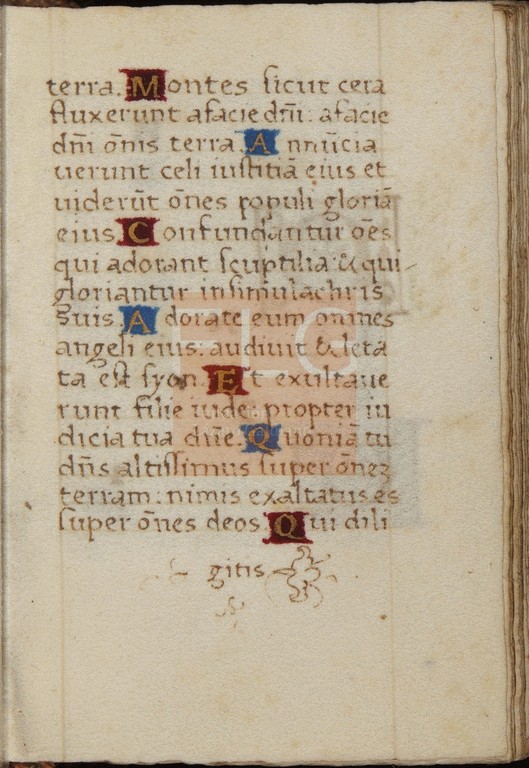 terra. Montes sicut cera
fluxerunt a facie dñi: a facie
dñi õnis terra. Annũcia
uerunt celi iustitiã eius et
uiderũt õnes populi gloriã
eius. Confundantur oẽs
qui adorant sculptilia: & qui
gloriantur in simulachris
suis. Adorate eum omnes
angeli eius: audiuit & leta
ta est syon. Et exultaue
runt filie iude: propter iu
dicia tua dñe. Quoniã tu
dñs altissimus super õnez
terram: nimis exaltatus es
super õnes deos. Qui dili
gitis